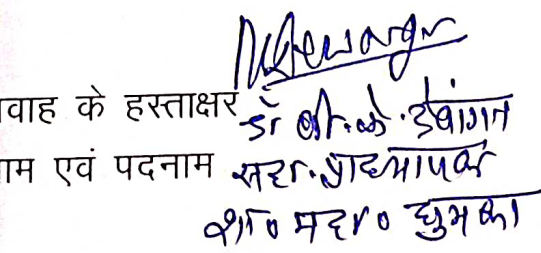 वाह के हस्ताक्षर
डॉ बी.के.देवांगन
ाम एवं पदनाम सहा.प्राध्यापक
शा० महा० घुमका